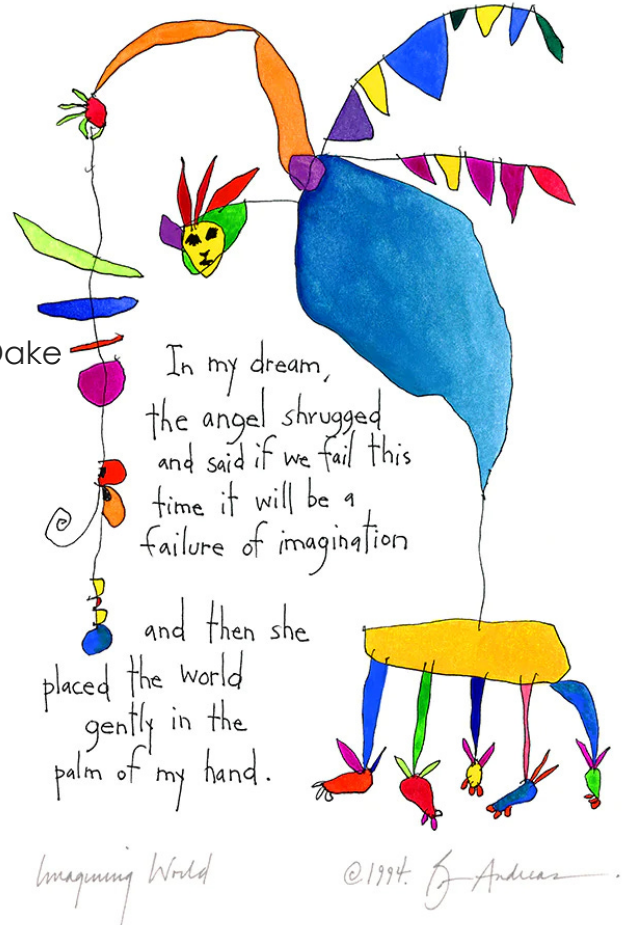 Dake
In my dream,
the angel shrugged
and said if we fail this
time it will be a
failure of imagination
and then she
placed the world
gently in the
palm of my hand.
Imagining World
©1994. Andreas